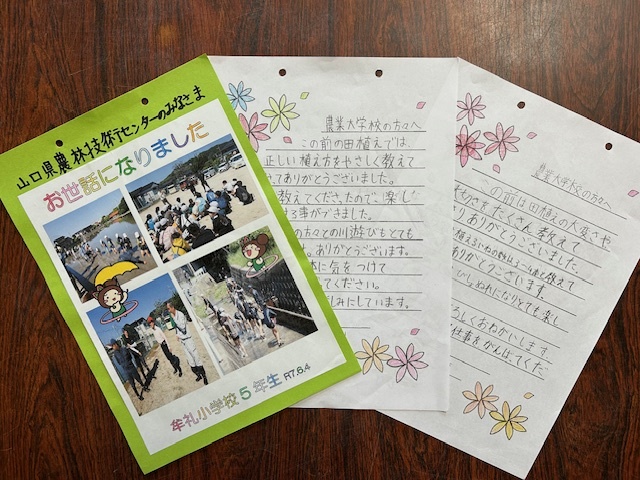 山口県農林技術センターのみなさま
お世話になりました
牟礼小学校5年生 R7.6.4
農業大学校の方々へ
この前の田植えでは、
正しい植え方をやさしく教えて
てありがとうございました。
教えてくださったので、楽し
る事ができました。
の方々との川遊びもとても
。ありがとうございます。
に気をつけて
てください。
しみにしています。
農業大学校の方々へ
この前は田植えの大変さや
さをたくさん教えて
りありがとうございました。
教えて
ありがとうございます。
ぬれになりとても楽し
ろしくおねがいします。
仕事をがんばってくだ